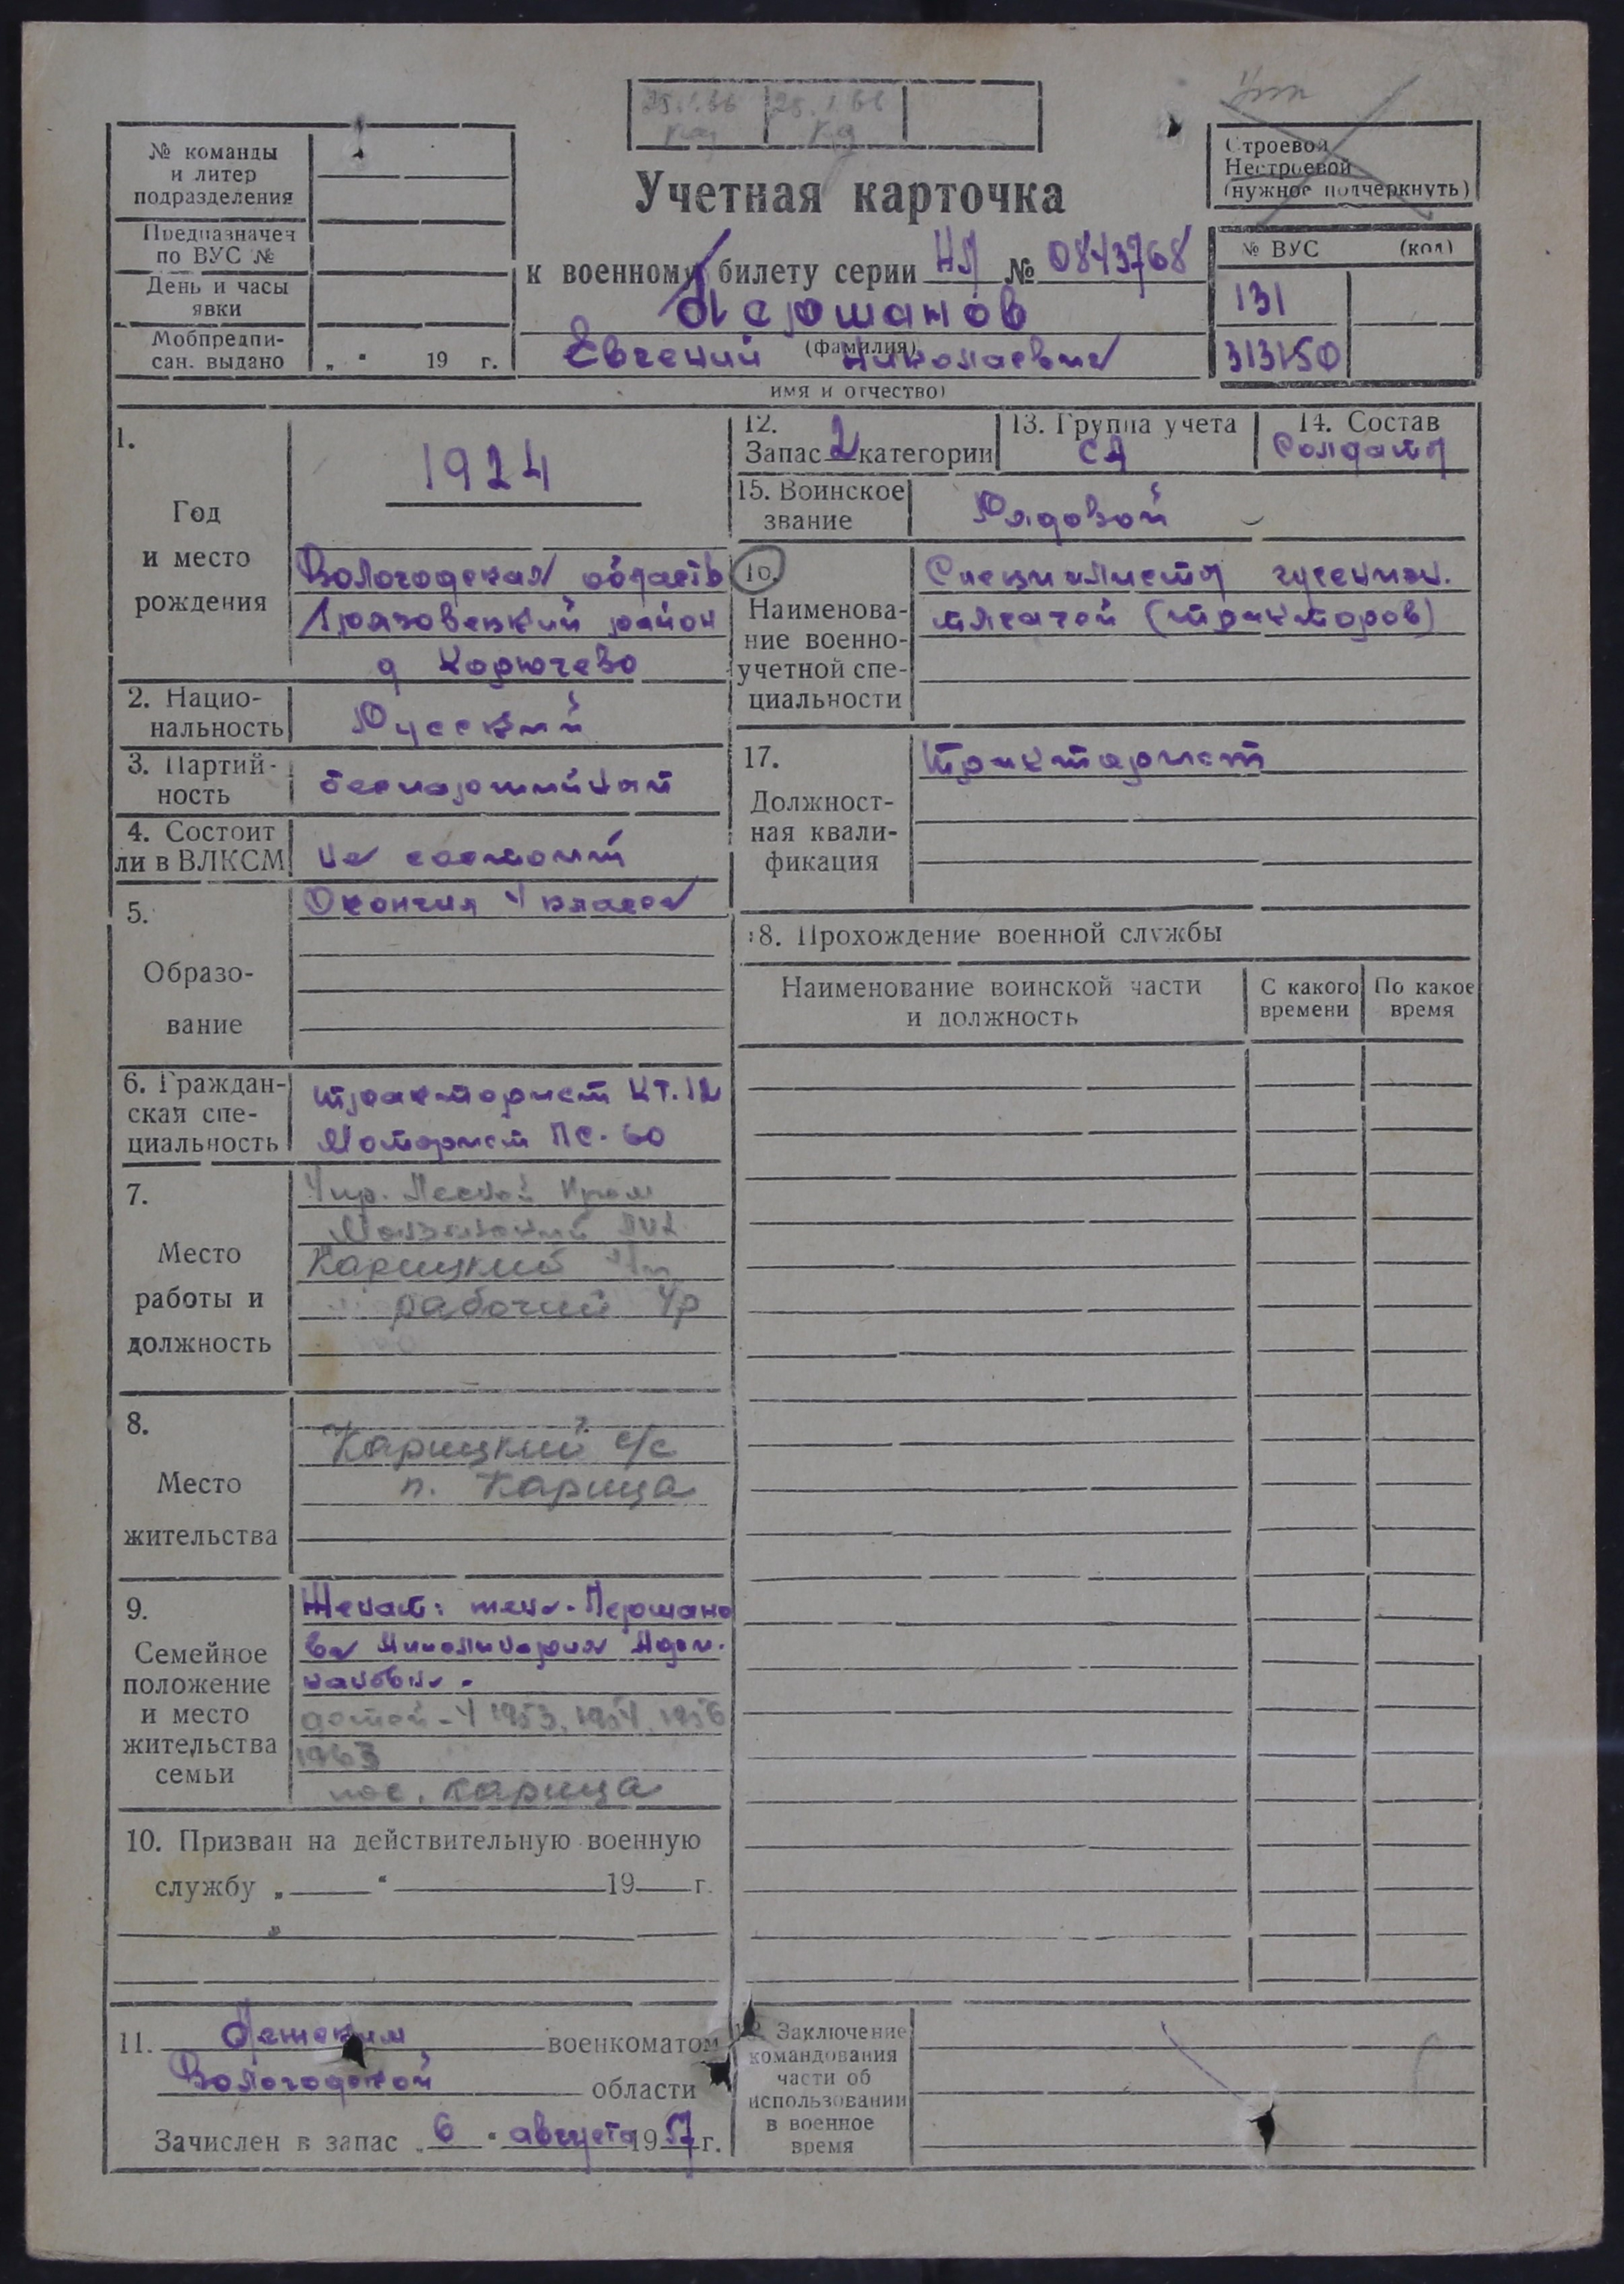 25.1.66
25.1.66
№ команды
и литер
подразделения
Предназначен
по ВУС №
День и часы
явки
Мобпредпи-
сан. выдано
„ " 19 г.
Учетная карточка
к военному билету серии НЛ № 0843768
Першанов
(фамилия)
Евгений Николаевич
имя и отчество)
Строевой
Нестроевой
(нужное подчеркнуть)
№ ВУС (код)
131
313150
1.
Год
и место
рождения
1924
Вологодская область
Грязовецкий район
д Кодючево
2. Нацио-
нальность
Русский
3. Партий-
ность
беспартийный
4. Состоит
ли в ВЛКСМ
Не состоит
5.
Образо-
вание
Окончил 4 класса
6. Граждан-
ская спе-
циальность
тракторист КТ-12
Моторист ПС-60
7.
Место
работы и
должность
Упр. Лесной
Карицкий л/п
рабочий
8.
Место
жительства
Карицкий с/с
п. Карица
9.
Семейное
положение
и место
жительства
семьи
Женат: жена - Першано
ва
детей - 4 1953, 1954, 1956
1963
пос. Карица
10. Призван на действительную военную
службу „ " 19 г.
11. военкоматом
Вологодской области
Зачислен в запас „6" августа 1957 г.
12.
Запас 2 категории
13. Группа учета
СА
14. Состав
Солдаты
15. Воинское
звание
Рядовой
16.
Наименова-
ние военно-
учетной спе-
циальности
Специалисты гусеничн.
тягачей (тракторов)
17.
Должност-
ная квали-
фикация
Тракторист
18. Прохождение военной службы
Наименование воинской части
и должность
С какого
времени
По какое
время
19. Заключение
командования
части об
использовании
в военное
время